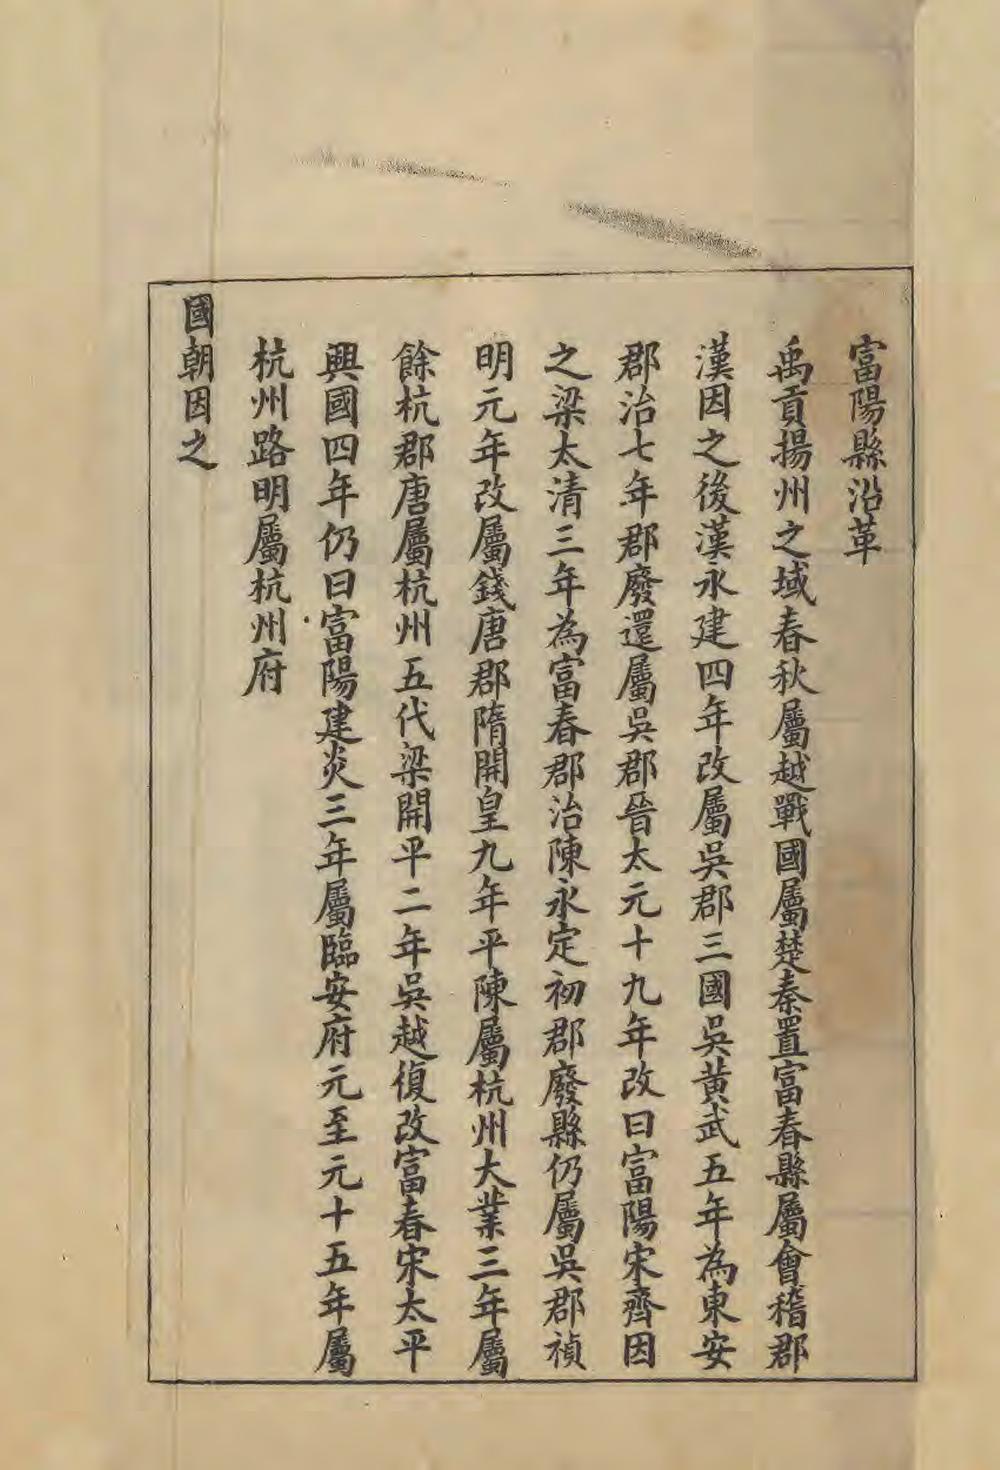 富陽縣沿革
禹貢揚州之域春秋屬越戰國屬楚秦置富春縣屬會稽郡
漢因之後漢永建四年改屬吳郡三國吳黃武五年為東安
郡治七年郡廢還屬吳郡晉太元十九年改曰富陽宋齊因
之梁太清三年為富春郡治陳永定初郡廢縣仍屬吳郡禎
明元年改屬錢唐郡隋開皇九年平陳屬杭州大業三年屬
餘杭郡唐屬杭州五代梁開平二年吳越復改富春宋太平
興國四年仍曰富陽建炎三年屬臨安府元至元十五年屬
杭州路明屬杭州府
國朝因之